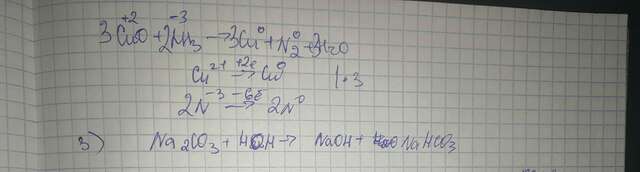 3CuO + 2NH₃ → 3Cu⁰ + N₂⁰ + 3H₂O
+2 -3
Cu²⁺ +2e → Cu⁰ | · 3
2N⁻³ -6e → 2N⁰
3) Na₂CO₃ + HOH → NaOH + NaHCO₃